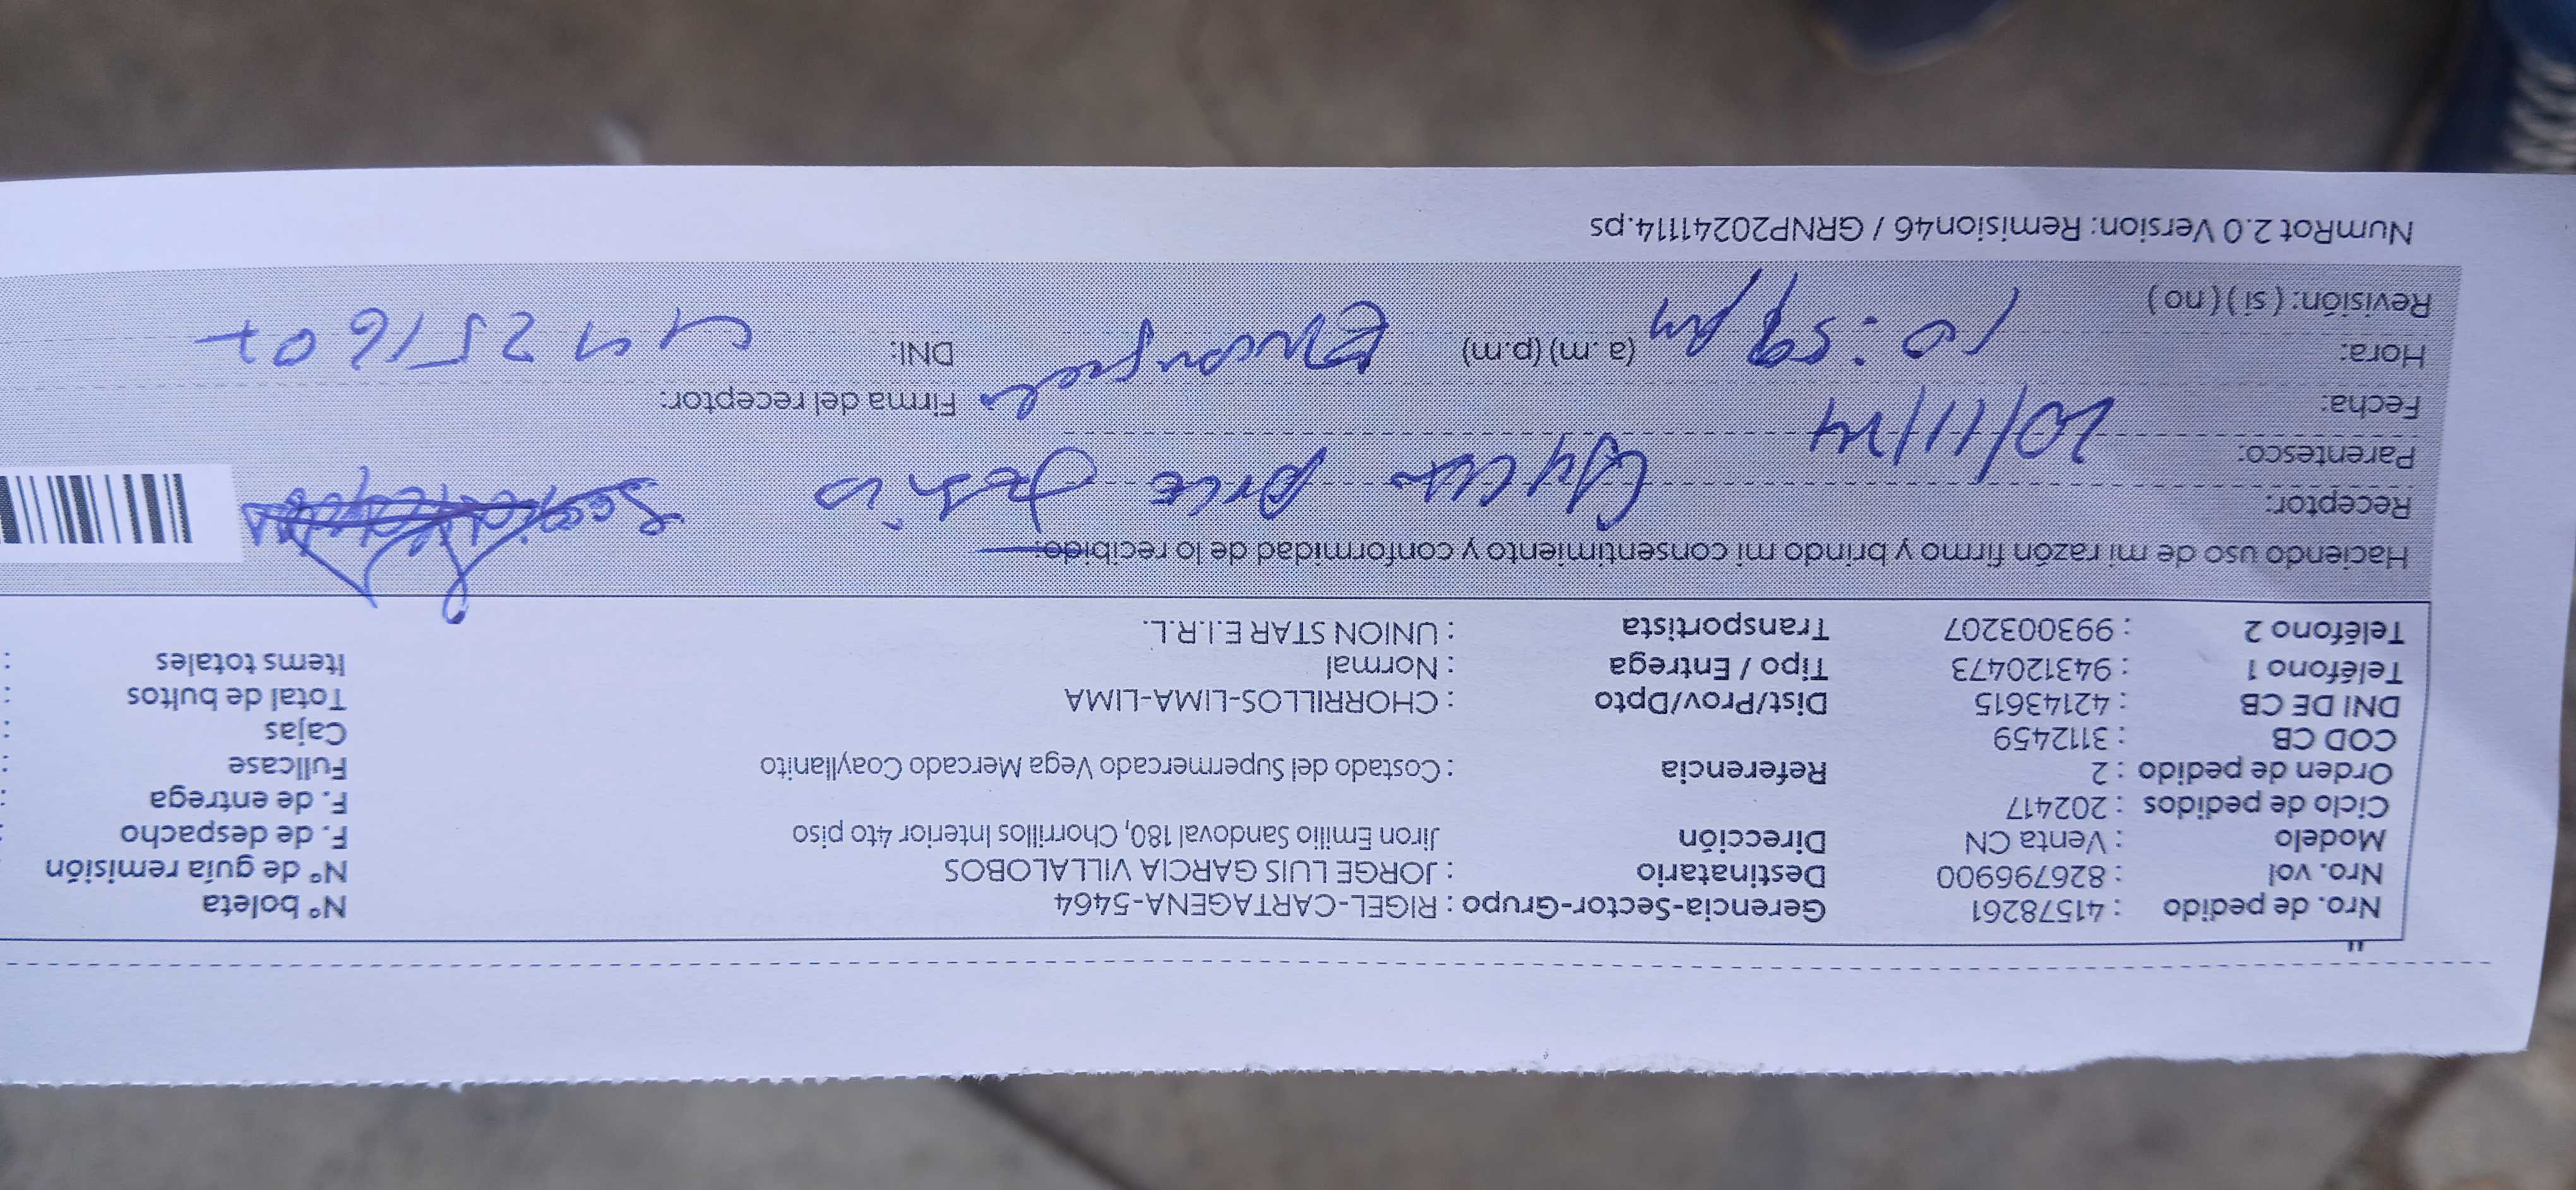 "
Nro. de pedido : 41578261 Gerencia-Sector-Grupo : RIGEL-CARTAGENA-5464 N° boleta
Nro. vol : 826796900 Destinatario : JORGE LUIS GARCIA VILLALOBOS N° de guía remisión
Modelo : Venta CN Dirección Jiron Emilio Sandoval 180, Chorrillos Interior 4to piso F. de despacho
Ciclo de pedidos : 202417 F. de entrega
Orden de pedido : 2 Referencia : Costado del Supermercado Vega Mercado Coayllanito Fullcase
COD CB : 3112459 Cajas
DNI DE CB : 42143615 Dist/Prov/Dpto : CHORRILLOS-LIMA-LIMA Total de bultos :
Teléfono 1 : 943120473 Tipo / Entrega : Normal Items totales :
Teléfono 2 : 993003207 Transportista : UNION STAR E.I.R.L.
Haciendo uso de mi razón firmo y brindo mi consentimiento y conformidad de lo recibido:
Receptor:
Parentesco:
Fecha: Firma del receptor:
Hora: (a.m) (p.m) DNI:
Revisión: ( si ) ( no )
NumRot 2.0 Version: Remision46 / GRNP20241114.ps